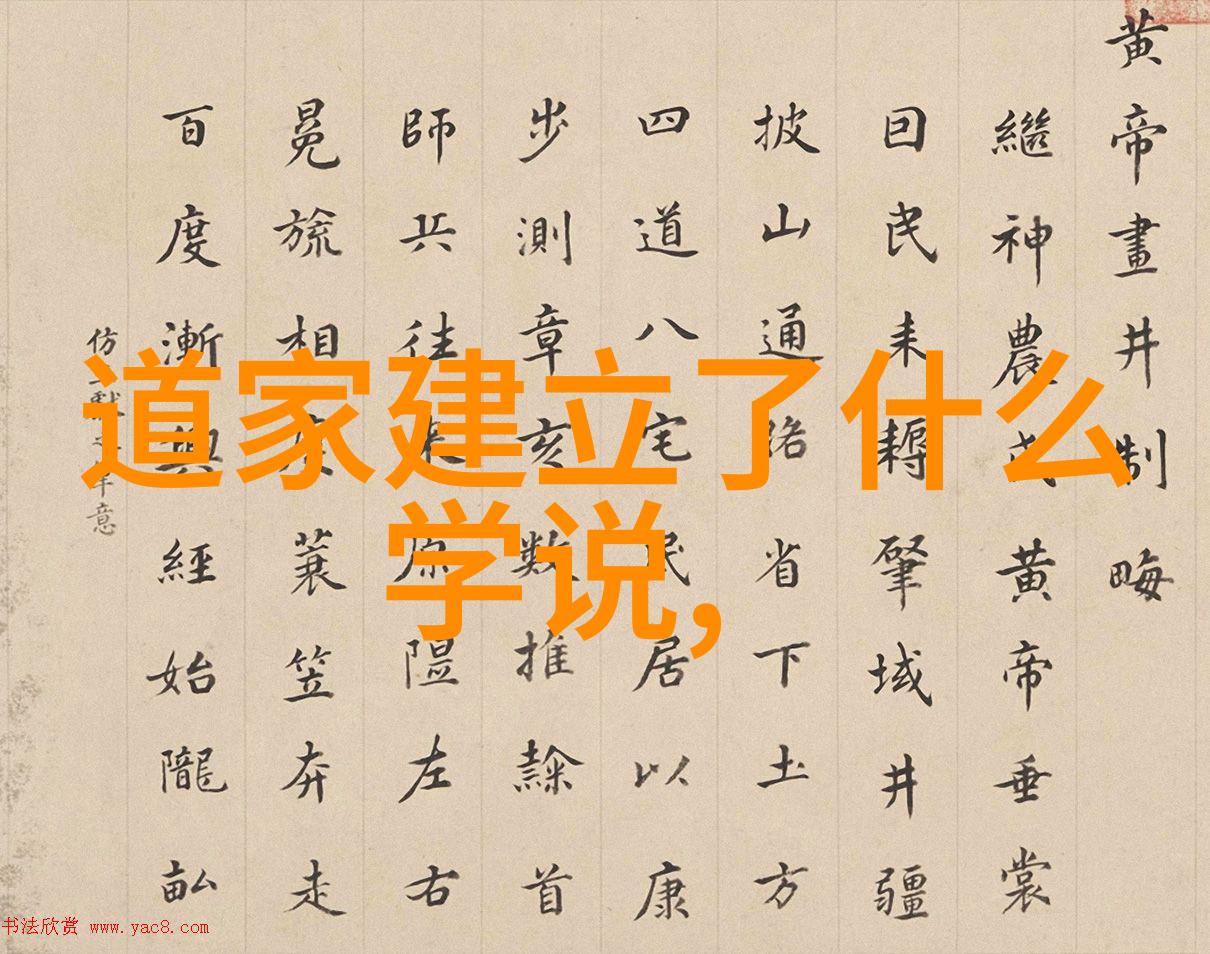 道家建立了什么
学说,
黄帝畫井制畮
繼神農氏黄帝垂裳
囙民耒耨肇域井疆
披山通路省下土方
四道八宅民居以康
步測章亥數推隸首
師兵往來原隰左右
冕旒相度蓑笠奔走
百度漸興經始隴畝
仿獻意
书法欣赏 www.yac8.com